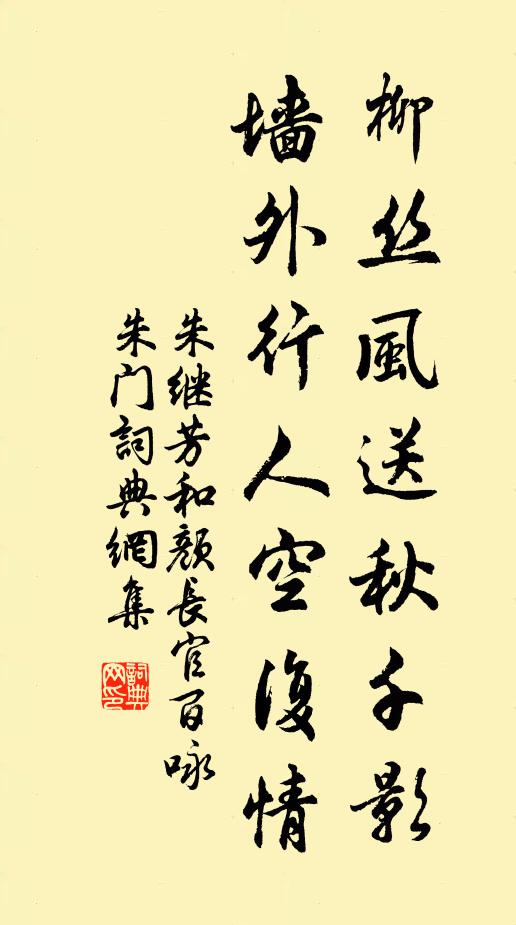 柳丝風送秋千影
墻外行人空復情
朱继芳和颜長官百咏
朱门詞典網集
詞典网印